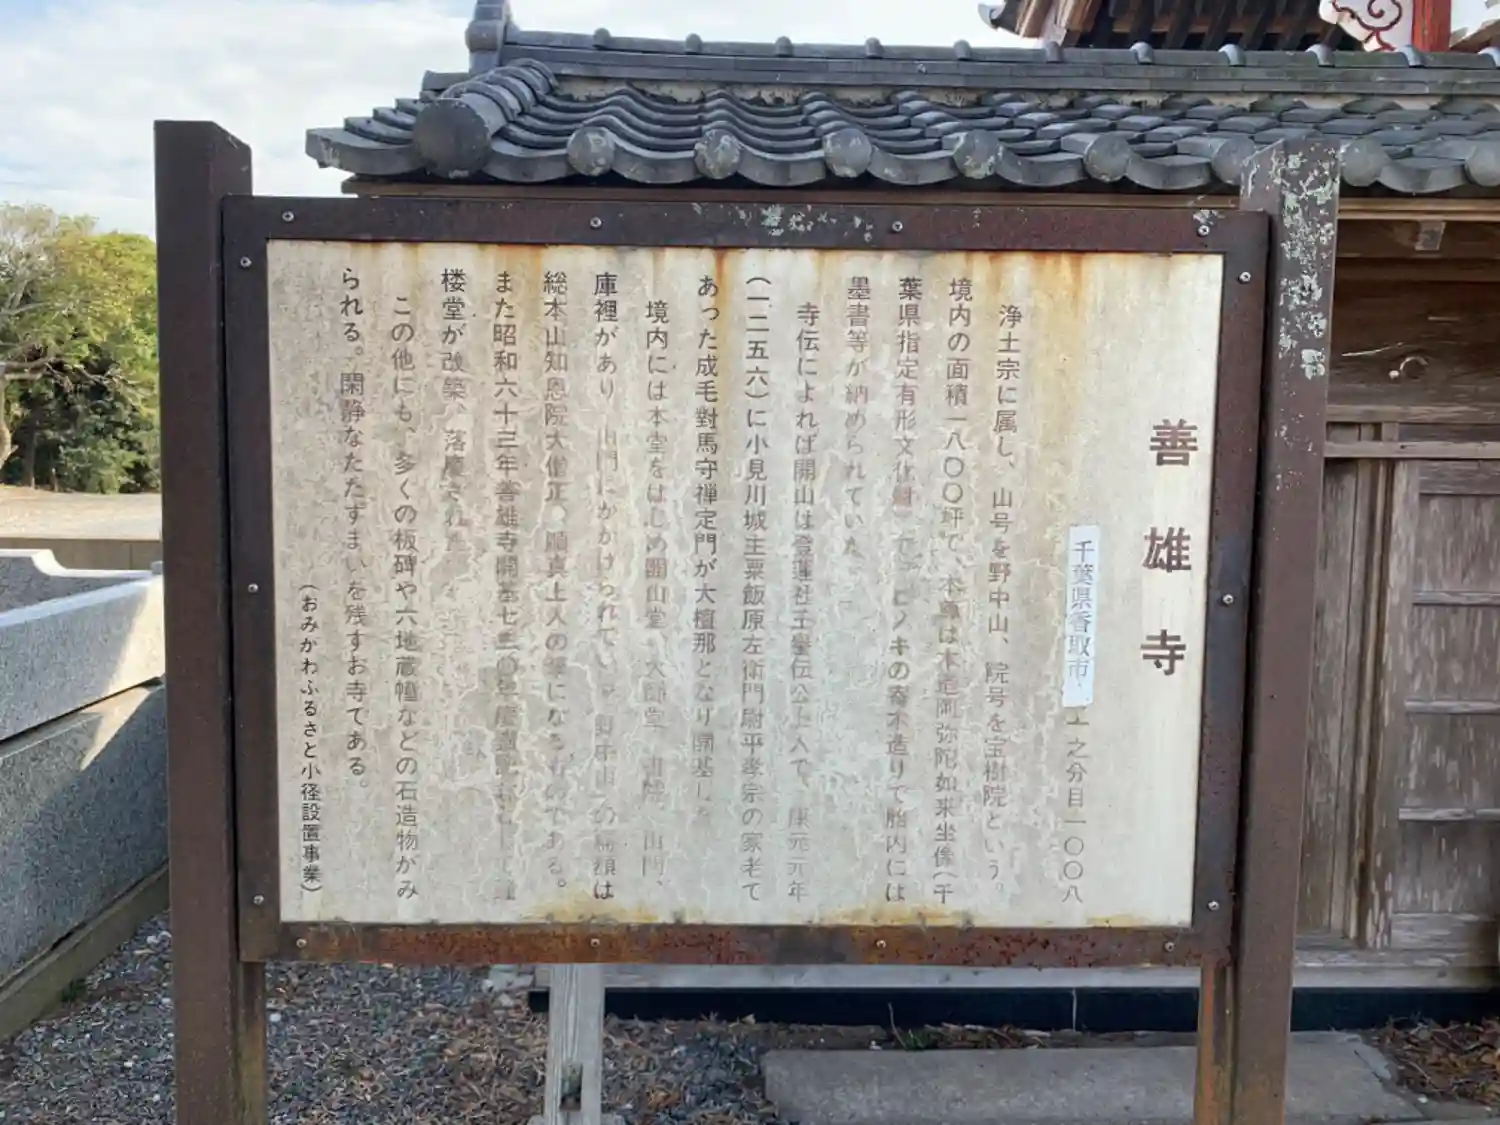 善雄寺
千葉県香取市
一之分目一〇〇八
浄土宗に属し、山号を野中山、院号を宝樹院という。
境内の面積一八〇〇坪で、本尊は木造阿弥陀如来坐像（千
葉県指定有形文化財）で、ヒノキの寄木造りで胎内には
墨書等が納められていた
寺伝によれば開山は 伝公上人で、康元元年
（一二五六）に小見川城主粟飯原左衛門尉平孝宗の家老て
あった成毛對馬守禅定門が大檀那となり開基した
境内には本堂をはじめ開山堂、大師堂、書院、山門、
庫裡があり、山門にかかげられている野中山の額は
総本山知恩院大僧正、願真上人の筆になるものである。
また昭和六十三年善雄寺開基七三〇年慶讃
楼堂が改築、落慶され
この他にも、多くの板碑や六地蔵幢などの石造物がみ
られる。閑静なたたずまいを残すお寺である。
（おみかわふるさと小径設置事業）